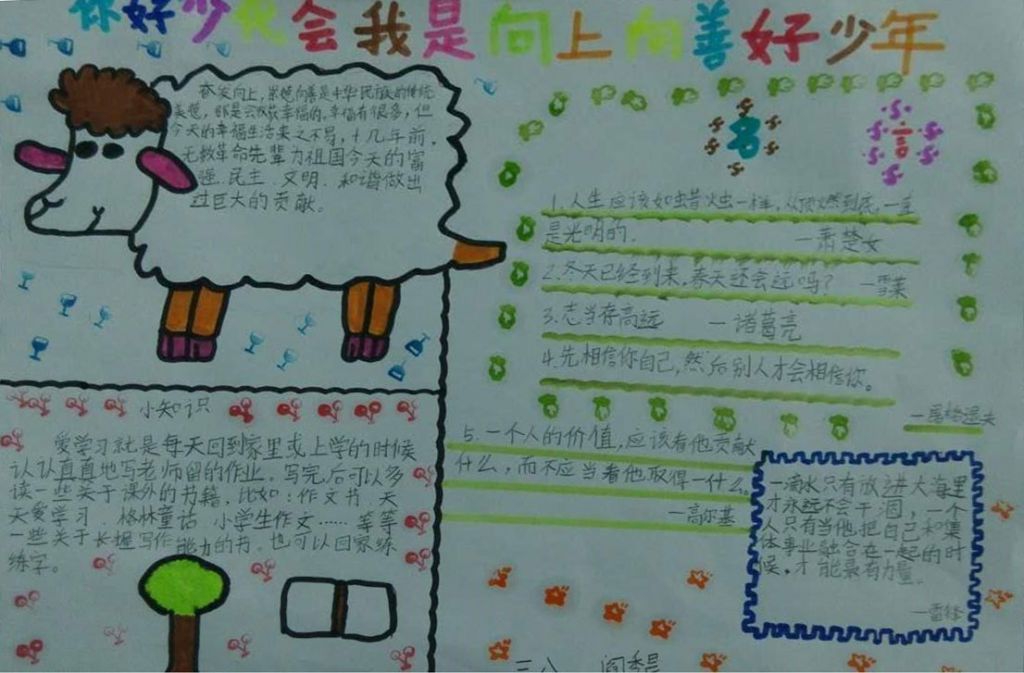 你好少先会我是向上向善好少年
奋发向上，崇德向善是中华民族的传统
美德，都是会收获幸福的，幸福有很多，但
今天的幸福生活来之不易，十几年前，
无数革命先辈为祖国今天的富
强．民主．文明．和谐做出
过巨大的贡献。
名言
1.人生应该如蜡烛一样，从顶燃到底，一直
是光明的．
—萧楚女
2.冬天已经到来，春天还会远吗？ —雪莱
3.志当存高远 —诸葛亮
4.先相信你自己，然后别人才会相信你。
—屠格涅夫
5.一个人的价值，应该看他贡献
什么，而不应当看他取得一什么。
—高尔基
一滴水只有放进大海里
才永远不会干涸，一个
人只有当他把自己和集
体事业融合在一起的时
候，才能最有力量．
—雷锋
小知识
爱学习就是每天回到家里或上学的时候
认认真真地写老师留的作业．写完后可以多
读一些关于课外的书籍．比如：作文书．天
天爱学习．格林童话．小学生作文……等等
一些关于长握写作能力的书．也可以回家练
练字．
三八 阎秀昰